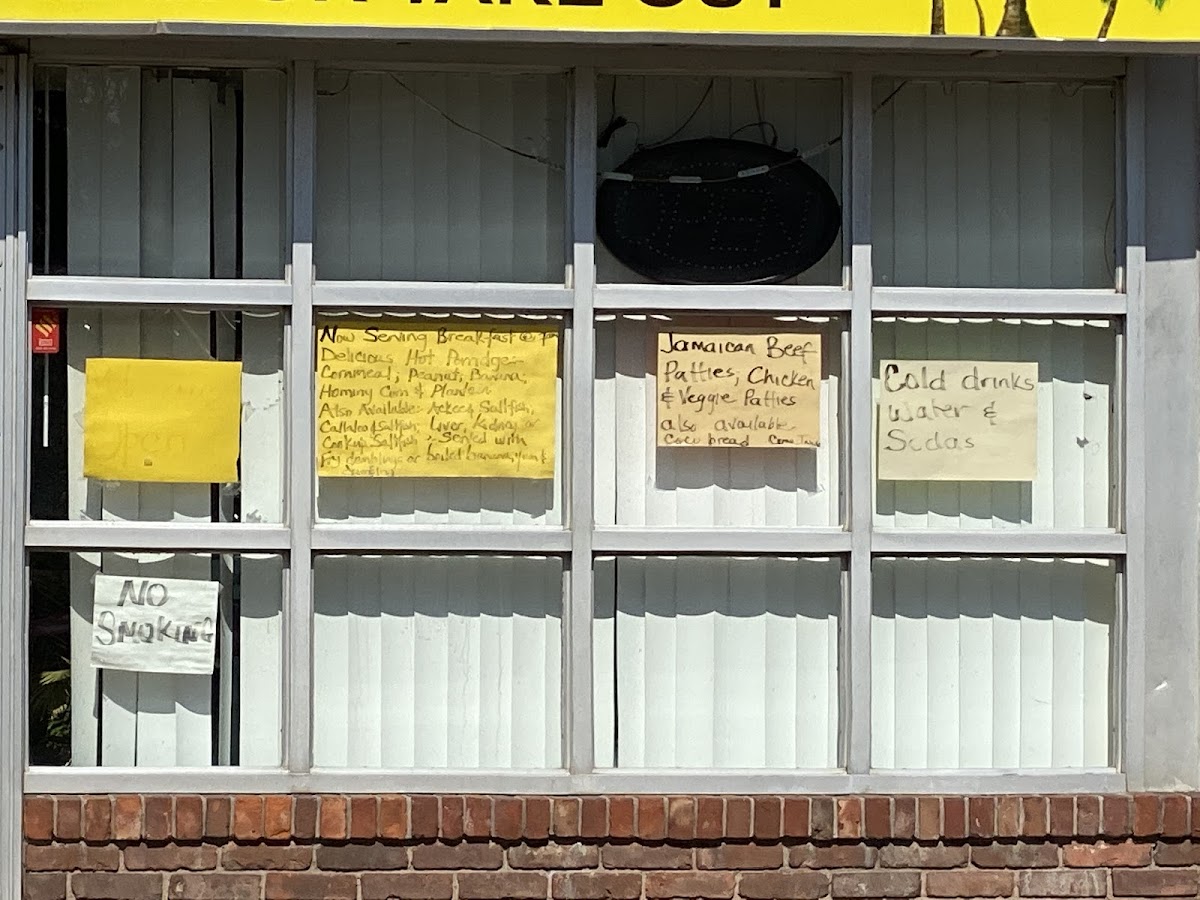 TAKE OUT
Open
Now Serving Breakfast
Delicious Hot Porridge:-
Cornmeal, Peanut, Banana,
Hominy Corn & Plantain
Also Available:- Ackee & Saltfish,
Callaloo & Saltfish, Liver, Kidney or
Cookup Saltfish :- Served with
Fry dumblings or boiled banana, yam &
dumbling
Jamaican Beef
Patties, Chicken
& Veggie Patties
also available
Coco bread
Cold drinks
Water &
Sodas
NO
SMOKING